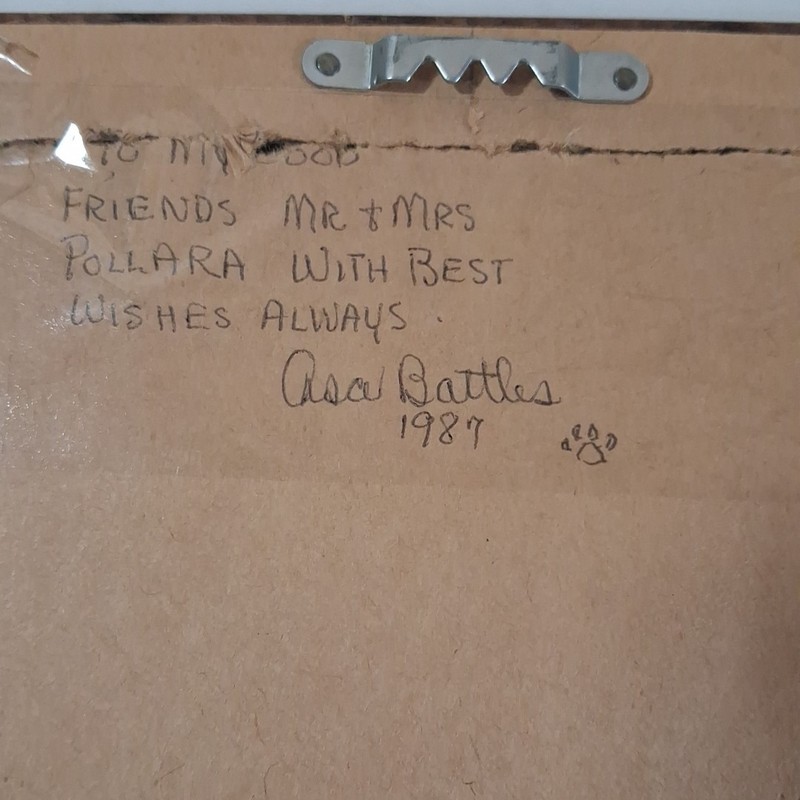 To My Good
FRIENDS MR & MRS
POLLARA WITH BEST
WISHES ALWAYS.
Asa Battles
1987